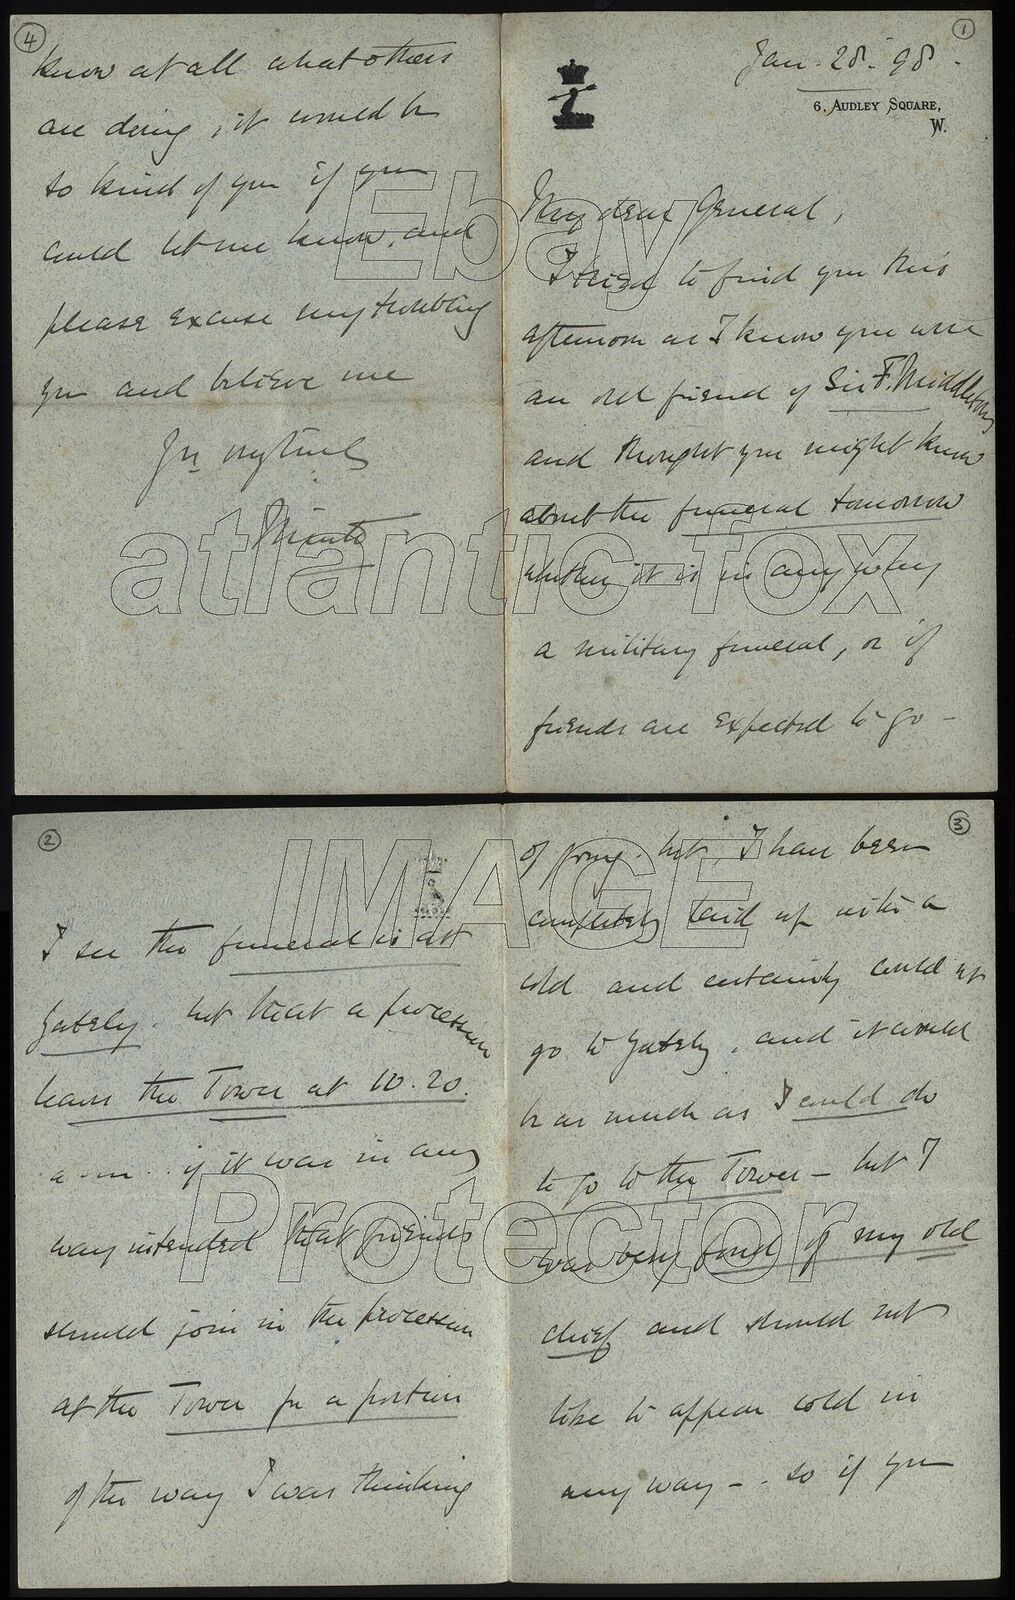 1
Jan. 28. 98.
6, AUDLEY SQUARE,
W.
My dear General,
I tried to find you this
afternoon as I know you were
an old friend of Sir F. Middleton's
and thought you might know
about the funeral tomorrow
whether it is in any way
a military funeral, or if
friends are expected to go -
2
I see the funeral is at
Yateley. but that a procession
leaves the Tower at 10.20.
a.m. . if it was in any
way intended that friends
should join in the procession
at the Tower for a portion
of the way I was thinking
3
of going. but, I have been
completely laid up with a
cold and certainly could not
go to Yateley, and it would
be as much as I could do
to go to the Tower - but I
was very fond of my old
chief and should not
like to appear cold in
any way - . so if you
4
know at all what others
are doing, it would be
so kind of you if you
could let me know, and
please excuse my troubling
you and believe me
Yrs. very truly
Minto
Ebay
atlantic-fox
IMAGE
Protector